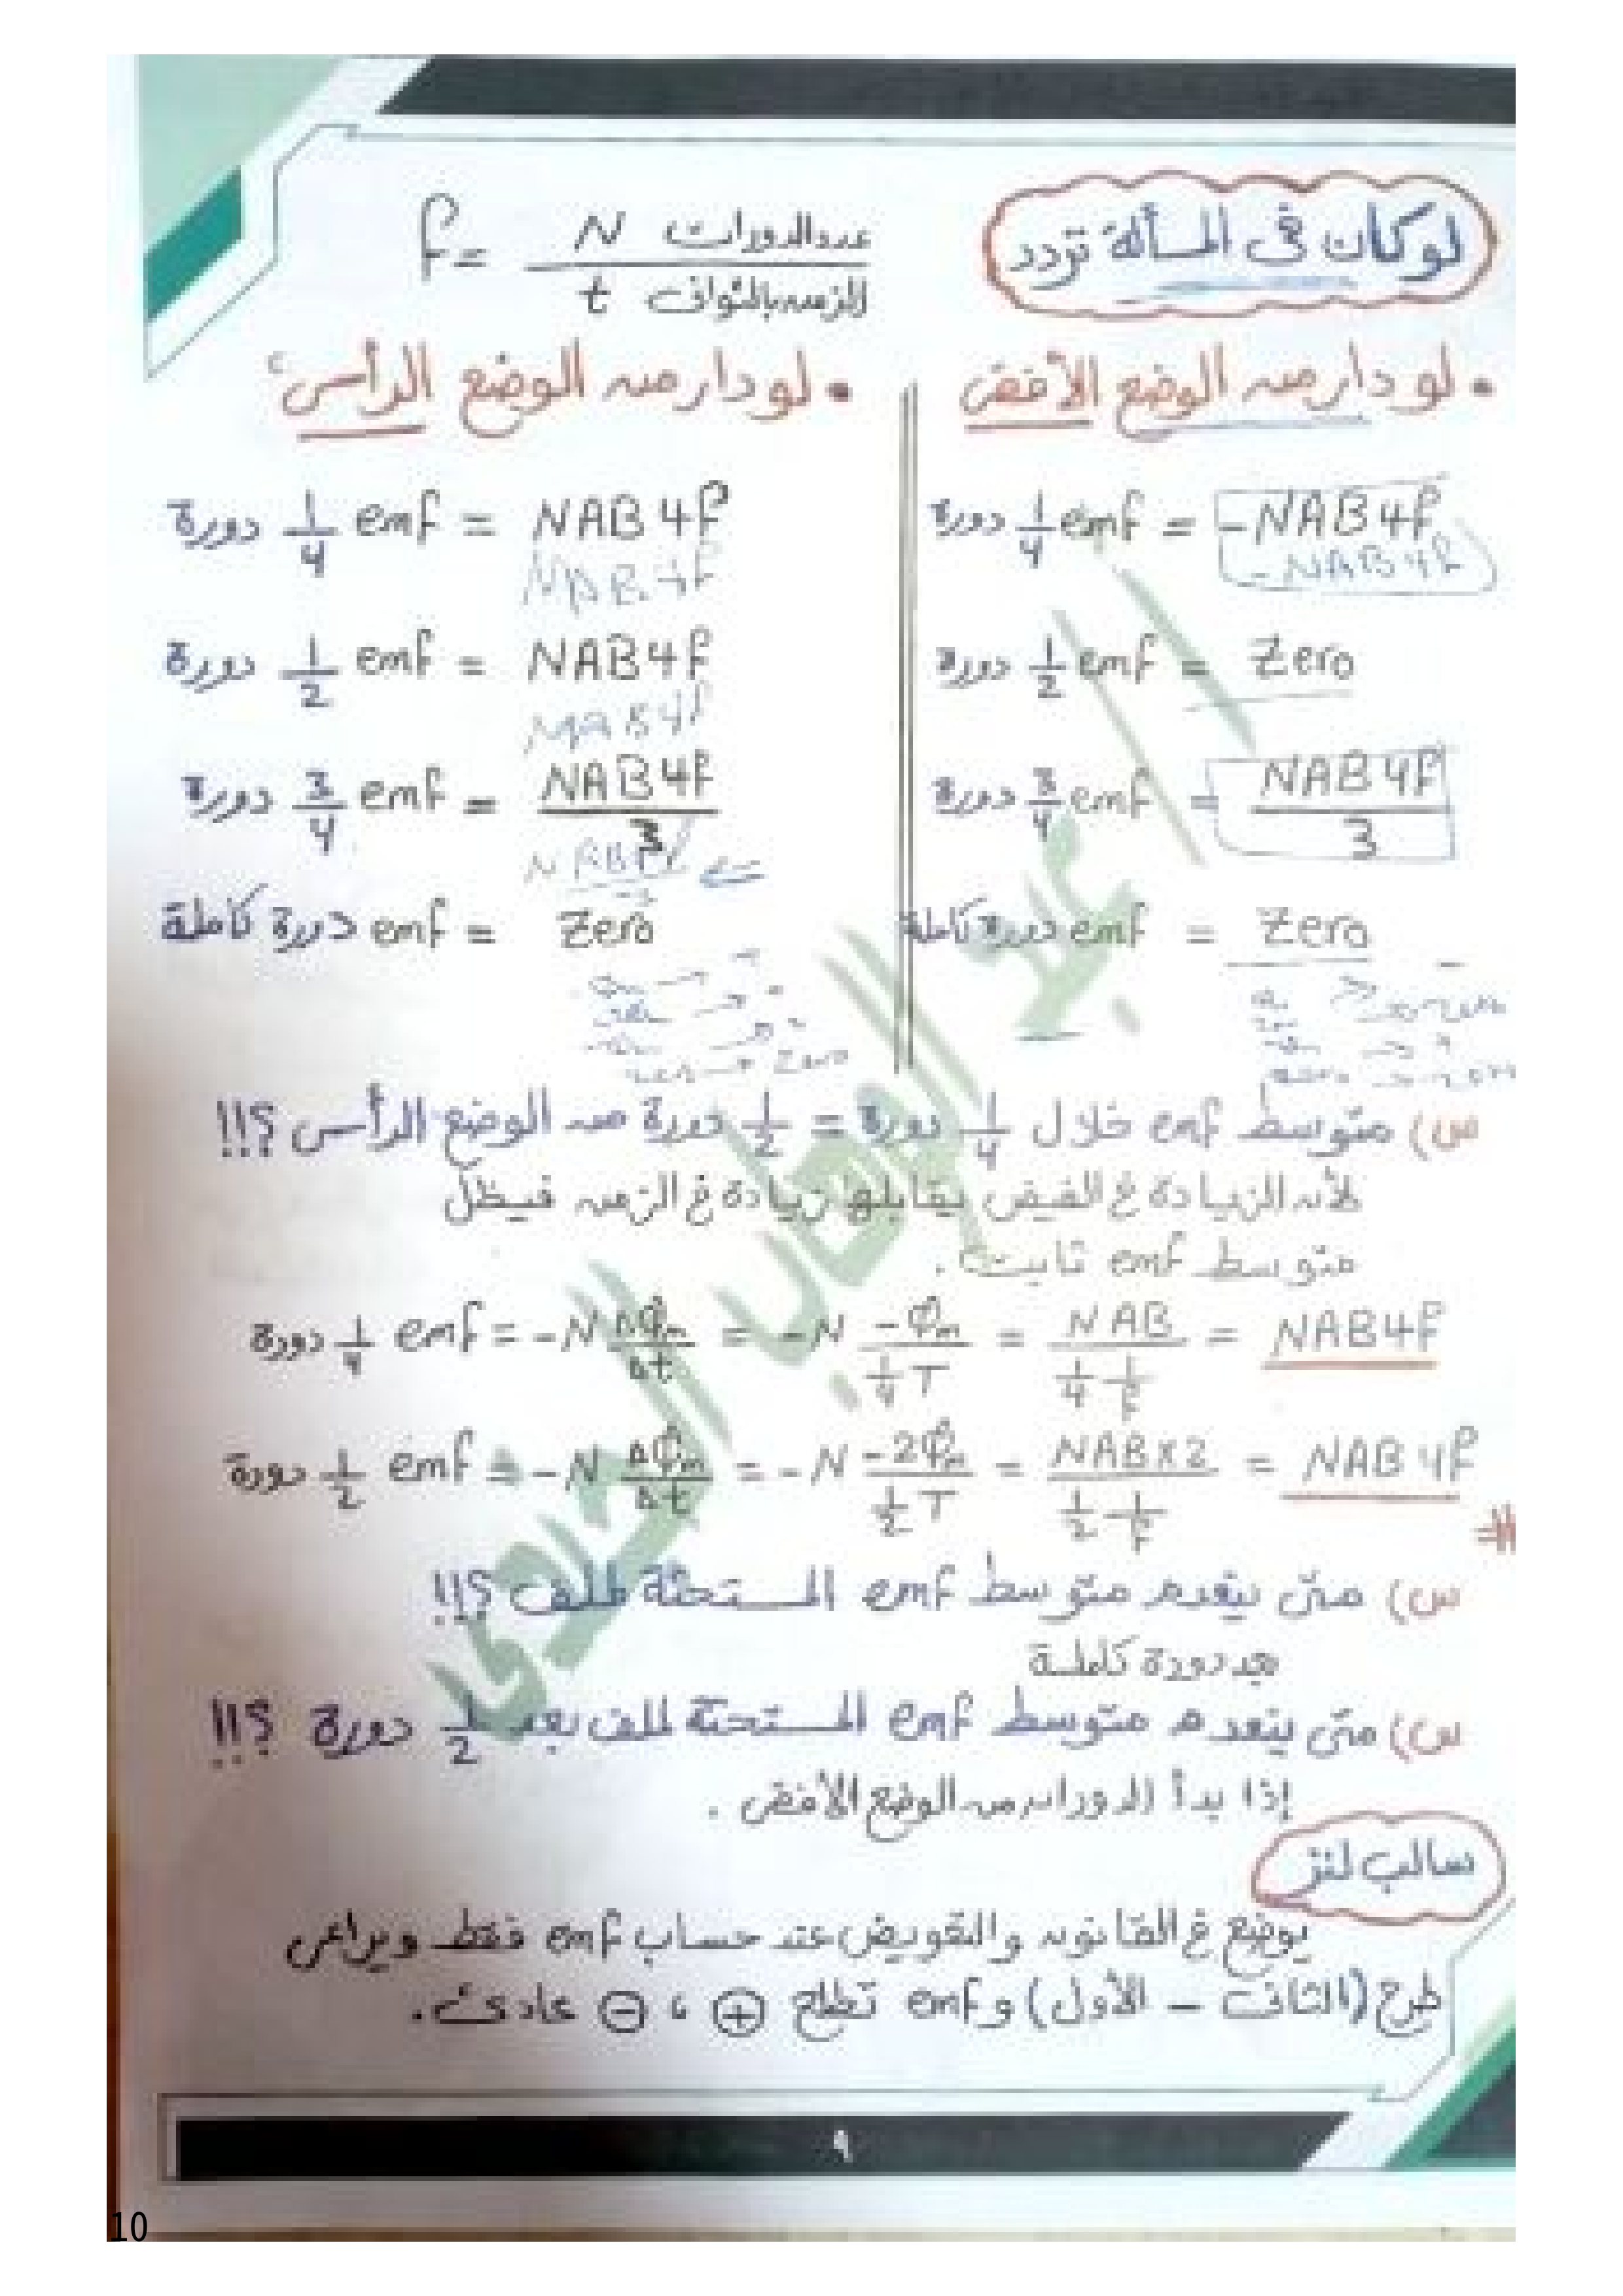 لو كان فى المسألة تردد
f = عدد الدورات N / الزمن بالثوانى t
• لو دار من الوضع الأفقى
emf 1/4 دورة = -NAB4f
-NAB4f
emf 1/2 دورة = Zero
emf 3/4 دورة = NAB4f / 3
emf دورة كاملة = Zero
• لو دار من الوضع الرأسى
emf 1/4 دورة = NAB4f
NAB4f
emf 1/2 دورة = NAB4f
NAB4f
emf 3/4 دورة = NAB4f / 3
emf دورة كاملة = Zero
س) متوسط emf خلال 1/4 دورة = 1/2 دورة من الوضع الرأسى ؟!!
لأن الزيادة فى الفيض يقابلها زيادة فى الزمن فيظل
متوسط emf ثابت .
emf 1/4 دورة = -N Δφm / Δt = -N -φm / 1/4 T = NAB / 1/4 1/f = NAB4f
emf 1/2 دورة = -N Δφm / Δt = -N -2φm / 1/2 T = NAB×2 / 1/2 1/f = NAB4f
#
س) متى ينعدم متوسط emf المستحثة لملف ؟!!
بعد دورة كاملة
س) متى ينعدم متوسط emf المستحثة لملف بعد 1/2 دورة ؟!!
إذا بدأ الدوران من الوضع الأفقى .
سالب لنز
يوضع فى القانون والتعويض عند حساب emf فقط ويراعى
طرح (الثانى - الأول) و emf تطلع ⊕ ، ⊖ عادى .
٩
10
محمد عبد الوهاب الجزاوى